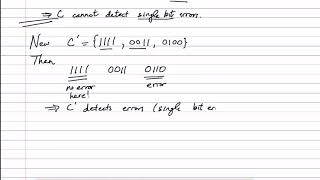 ⇒ C cannot detect single bit errors.
New C' = {1111, 0011, 0100}
Then
1111 0011 0110
no error here! error
⇒ C' detects errors (single bit er